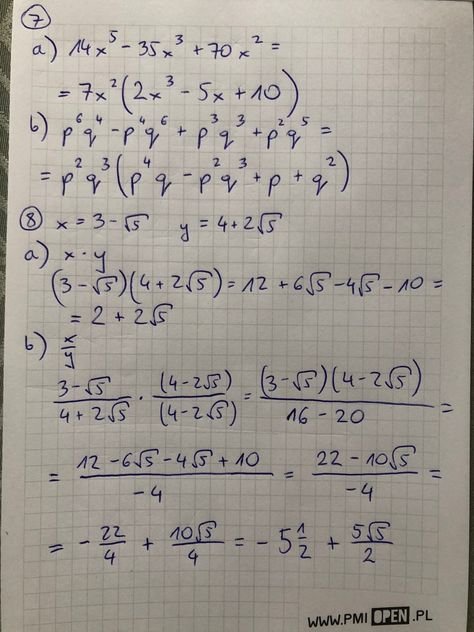 7
a) 14x⁵ - 35x³ + 70x² =
= 7x²(2x³ - 5x + 10)
b) p⁶q⁴ - p⁴q⁶ + p³q³ + p²q⁵ =
= p²q³(p⁴q - p²q³ + p + q²)
8 x = 3 - √5 y = 4 + 2√5
a) x · y
(3 - √5)(4 + 2√5) = 12 + 6√5 - 4√5 - 10 =
= 2 + 2√5
b) x/y
(3 - √5)/(4 + 2√5) · (4 - 2√5)/(4 - 2√5) = (3 - √5)(4 - 2√5)/(16 - 20) =
= (12 - 6√5 - 4√5 + 10)/(-4) = (22 - 10√5)/(-4) =
= - 22/4 + 10√5/4 = - 5 1/2 + 5√5/2
WWW.PMI OPEN .PL